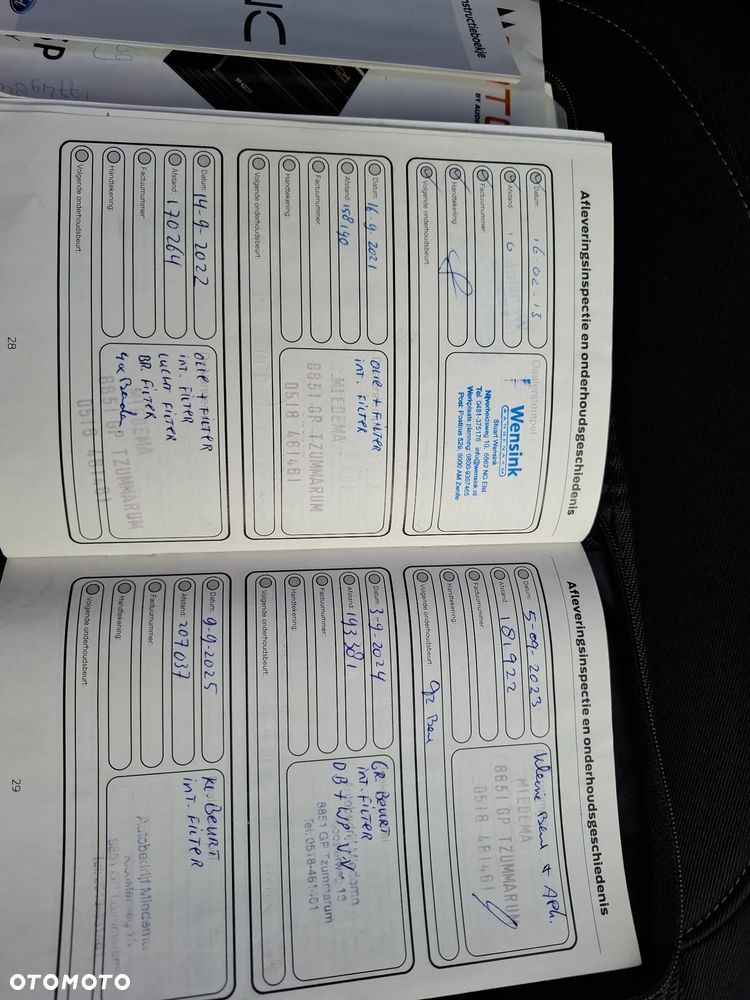 nstructieboekje
BY AUDI
Afleveringsinspectie en onderhoudsgeschiedenis
Datum: 16-02-13
Afstand: 10
Factuurnummer:
Handtekening:
Volgende onderhoudsbeurt:
Dealerstempel
Wensink
Stuart Wensink
Nijverheidsweg 10, 6662 NG Elst
Tel. 0481-375178
Werkplaats planning: 0800-9367465
Post: Postbus 529, 8000 AM Zwolle
Datum: 16-9-2021
Afstand: 158190
Factuurnummer:
Handtekening:
Volgende onderhoudsbeurt:
OLIE + FILTER
INT. FILTER
MIEDEMA
8851 GP TZUMMARUM
0518 481461
Datum: 14-9-2022
Afstand: 170264
Factuurnummer:
Handtekening:
Volgende onderhoudsbeurt:
OLIE + FILTER
INT. FILTER
LUCHT FILTER
BR. FILTER
MIEDEMA
8851 GP TZUMMARUM
0518 481461
28
Afleveringsinspectie en onderhoudsgeschiedenis
Datum: 5-09-2023
Afstand: 181922
Factuurnummer:
Handtekening:
Volgende onderhoudsbeurt:
Kleine Beurt + APK.
MIEDEMA
8851 GP TZUMMARUM
0518 481461
Datum: 3-9-2024
Afstand: 193381
Factuurnummer:
Handtekening:
Volgende onderhoudsbeurt:
GR. BEURT
INT. FILTER
8851 GP Tzummarum
Tel: 0518-481461
Datum: 9-9-2025
Afstand: 207037
Factuurnummer:
Handtekening:
Volgende onderhoudsbeurt:
KL. BEURT
INT. FILTER
Autobedrijf Miedema
8851 GP Tzummarum
29
OTOMOTO